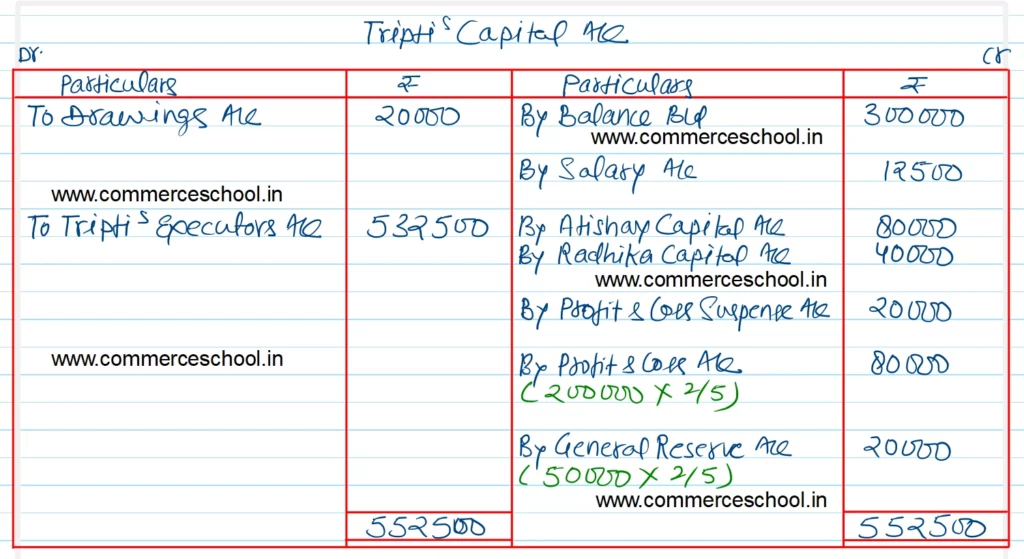 Tripti's Capital A/c
Dr. Cr
Particulars ₹ Particulars ₹
To Drawings A/c 20000 By Balance B/d 300000
www.commerceschool.in
By Salary A/c 12500
www.commerceschool.in
To Tripti's Executors A/c 532500 By Atishay Capital A/c 80000
By Radhika Capital A/c 40000
www.commerceschool.in
By Profit & Loss Suspense A/c 20000
www.commerceschool.in By Profit & Loss A/c 80000
(200000 X 2/5)
By General Reserve A/c 20000
(50000 X 2/5)
www.commerceschool.in
552500 552500